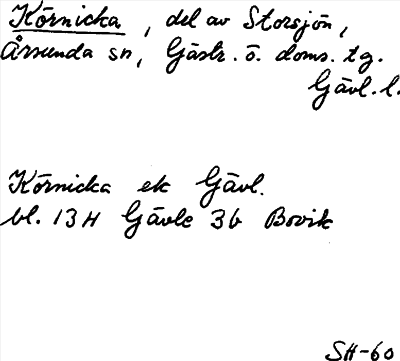 Körnicka, del av Storsjön,
Årsunda sn, Gästr. ö. doms. tg.
Gävl. l.
Körnicka ek Gävl.
bl. 13H Gävle 3b Bovik
SH-60